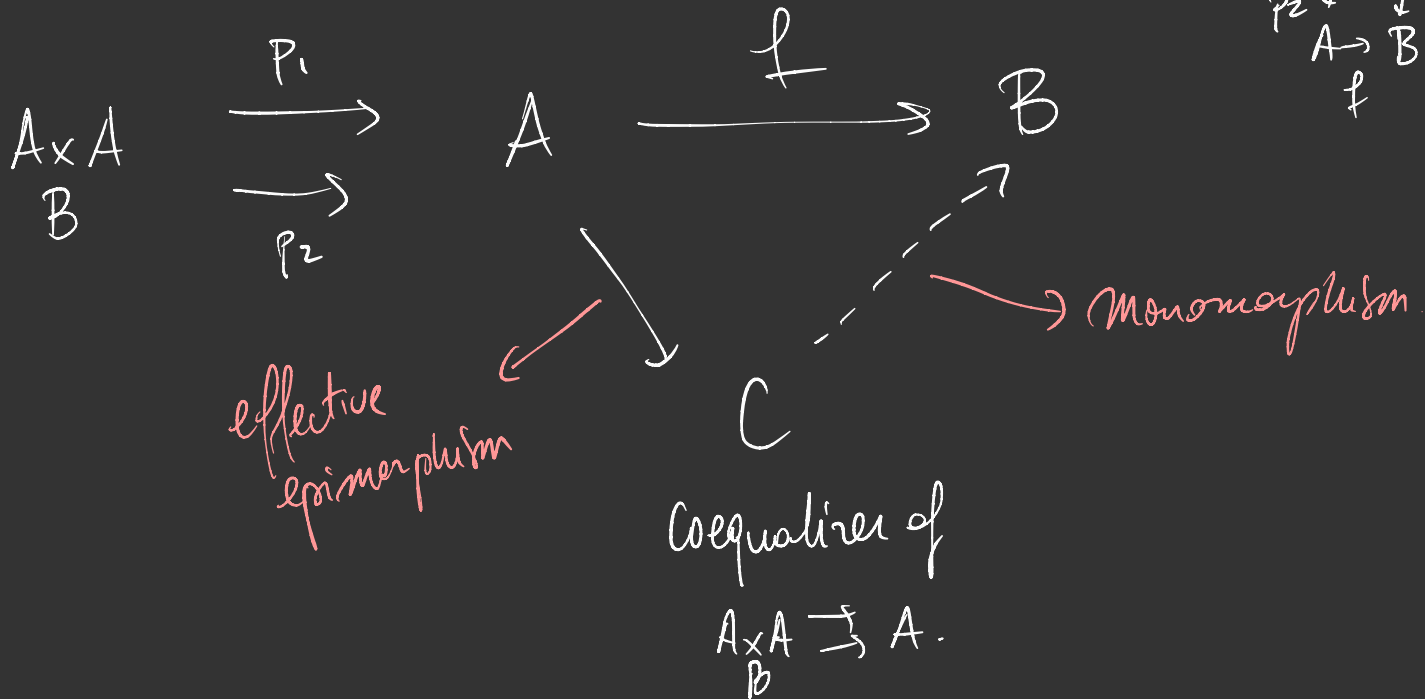 P2
A → B
f
P1
f
A×A
B
A
B
P2
monomorphism
effective
epimorphism
C
Coequalizer of
A×A ⇉ A.
B